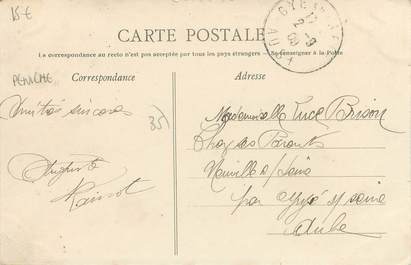 15€
CARTE POSTALE
La correspondance au recto n'est pas acceptée par tous les pays étrangers - Se renseigner à la Poste
PENICHE
Correspondance
Adresse
Amitiés sincères
35)
Mademoiselle Luce Brison
Chez ses Parents
Neuville s/ Seine
par Gyé s/ seine
Aube
Auguste